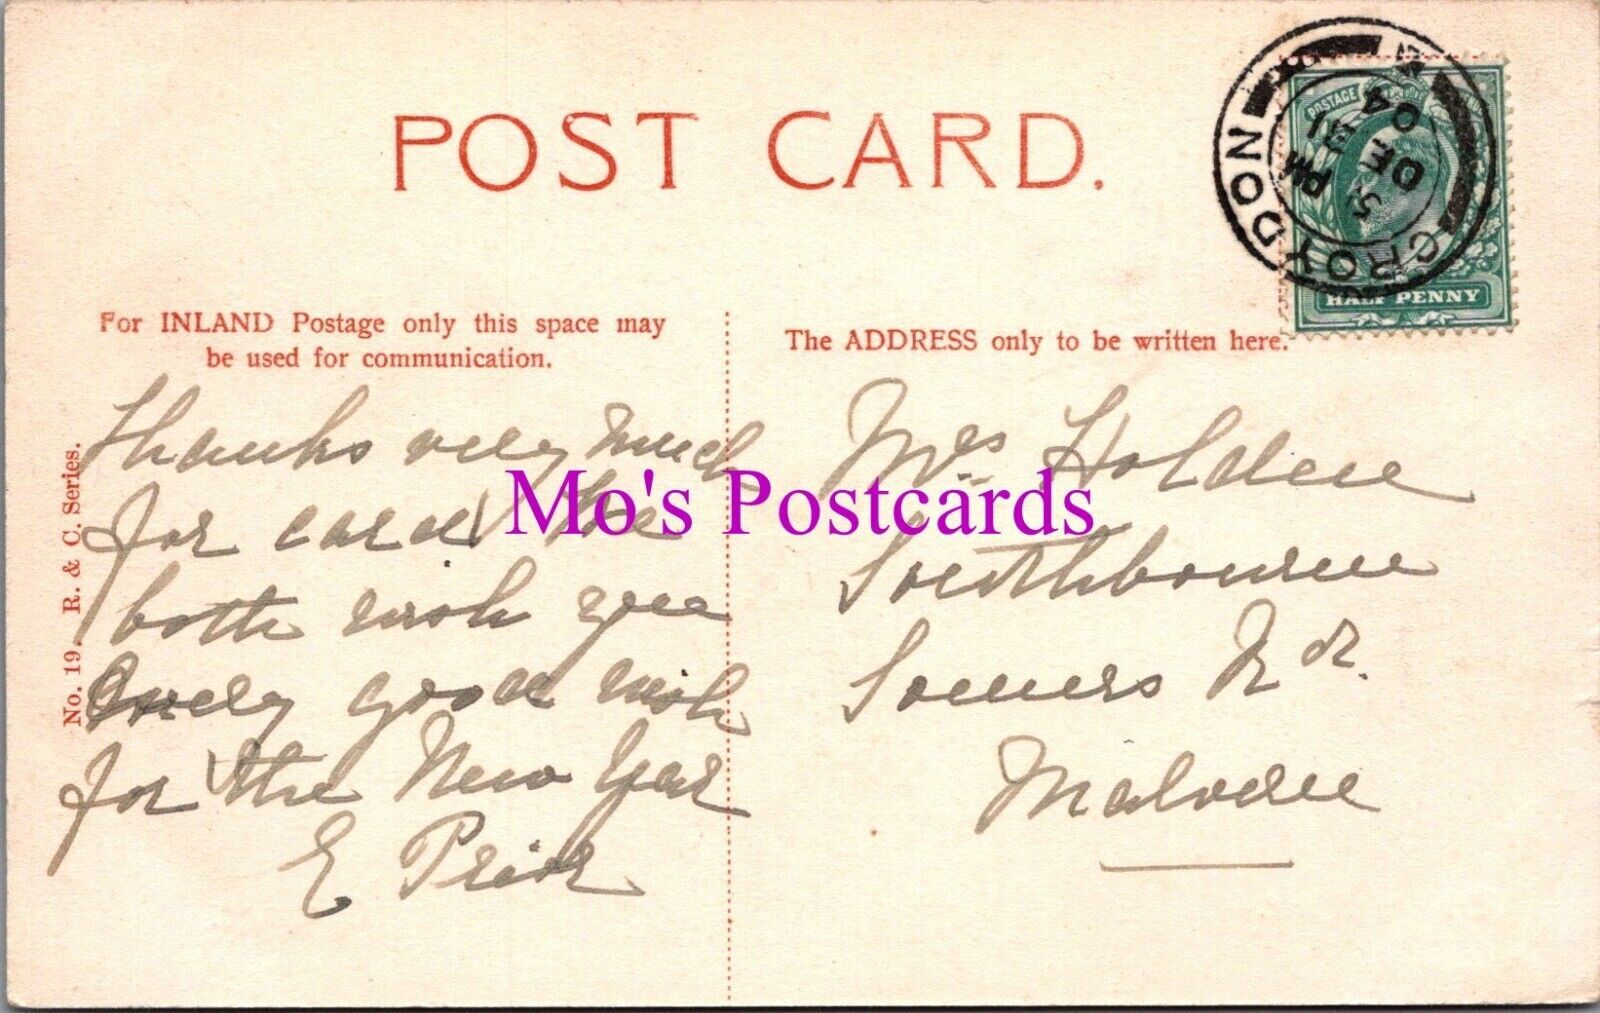 POST CARD.
For INLAND Postage only this space may
be used for communication.
The ADDRESS only to be written here.
No. 19. R. & C. Series.
Thanks very much
for card We
both wish you
Every good wish
for the New Year
E Prior
Mrs Holden
Southbourne
Somers Rd.
Malvern
CROYDON
5 PM
DE 31
04
POSTAGE
HALF PENNY
Mo's Postcards